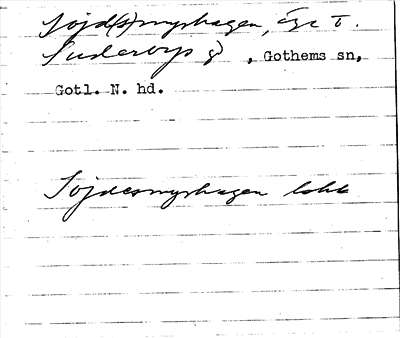 Söjd(s)myrhagen, äga t.
Suderbys gd, Gothems sn,
Gotl. N. hd.
Söjdesmyrhagen lokk